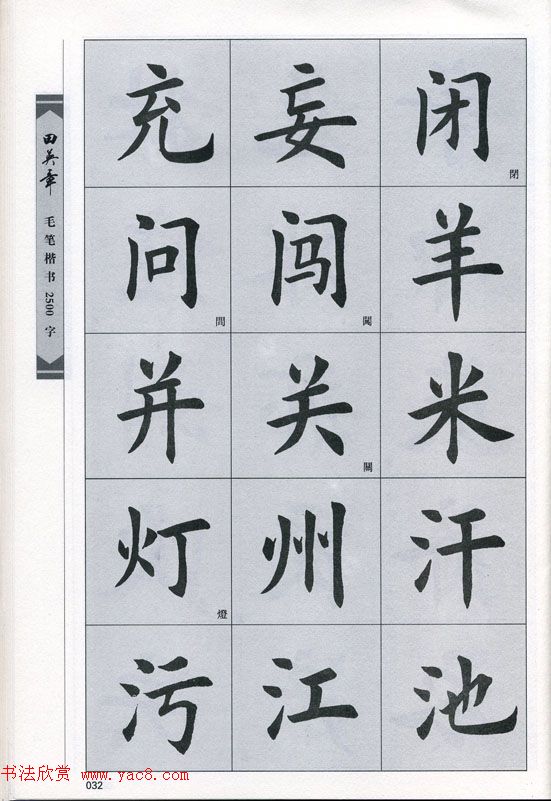 田英章 毛笔楷书2500字
充 妄 闭 閉
问 問 闯 闖 羊
并 关 關 米
灯 燈 州 汗
污 江 池
书法欣赏 www.yac8.com
032